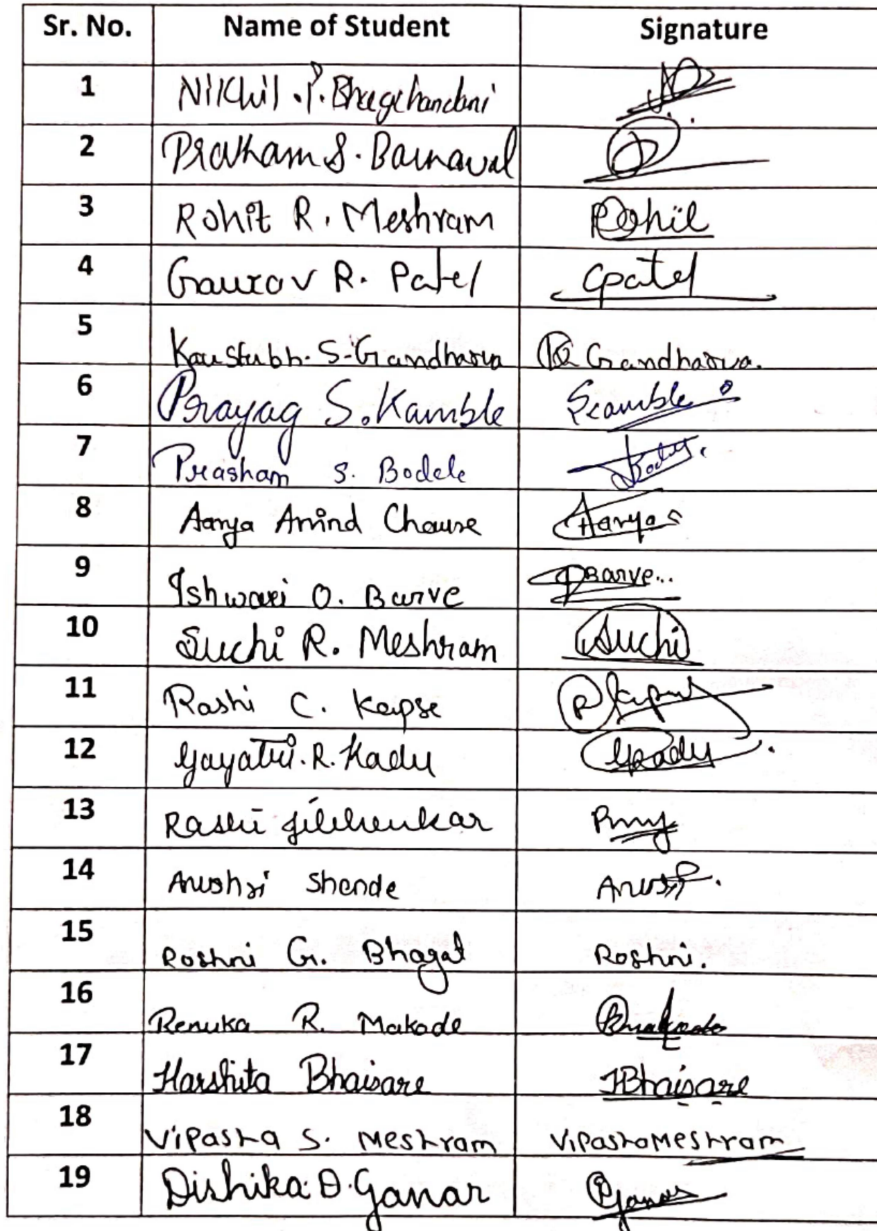 Sr. No. Name of Student Signature
1 Nikhil .P. Bhagchandani
2 Pratham S. Barnaval
3 Rohit R. Meshram Rohit
4 Gaurav R. Patel Gpatel
5 Kaustubh. S. Gandharva K Gandharva.
6 Prayag S. Kamble
7 Prasham S. Bodele
8 Aarya Arvind Chause Aarya
9 Ishwari O. Barve Barve...
10 Suchi R. Meshram Suchi
11 Rashi C. Kapse
12 Gayatri. R. Kadu GKadu
13 Rashi
14 Anushri Shende
15 Roshni G. Bhagat Roshni.
16 Renuka R. Makode
17 Harshita Bhaisare HBhaisare
18 Vipasha S. Meshram Vipasha Meshram
19 Dishika. D. Ganar